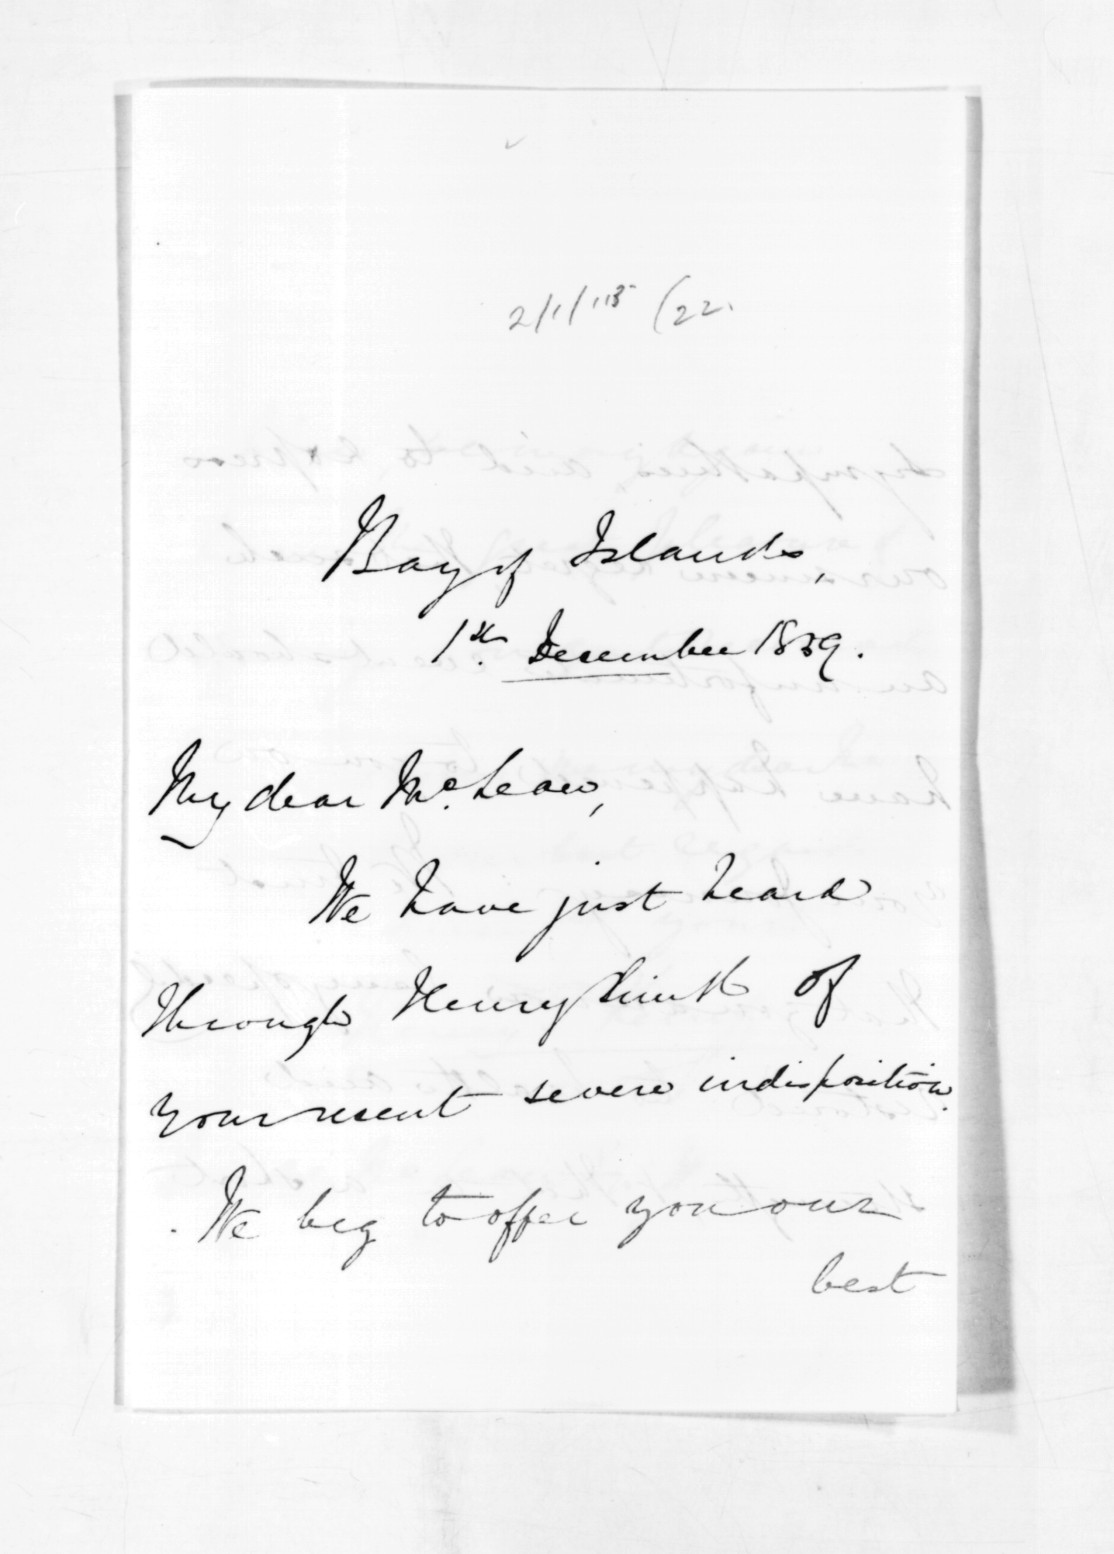 2/1/115 (22.
Bay of Islands,
1st. December 1859.
My dear McLean,
We have just heard
through Henry Smith of
your recent severe indisposition.
We beg to offer you our
best